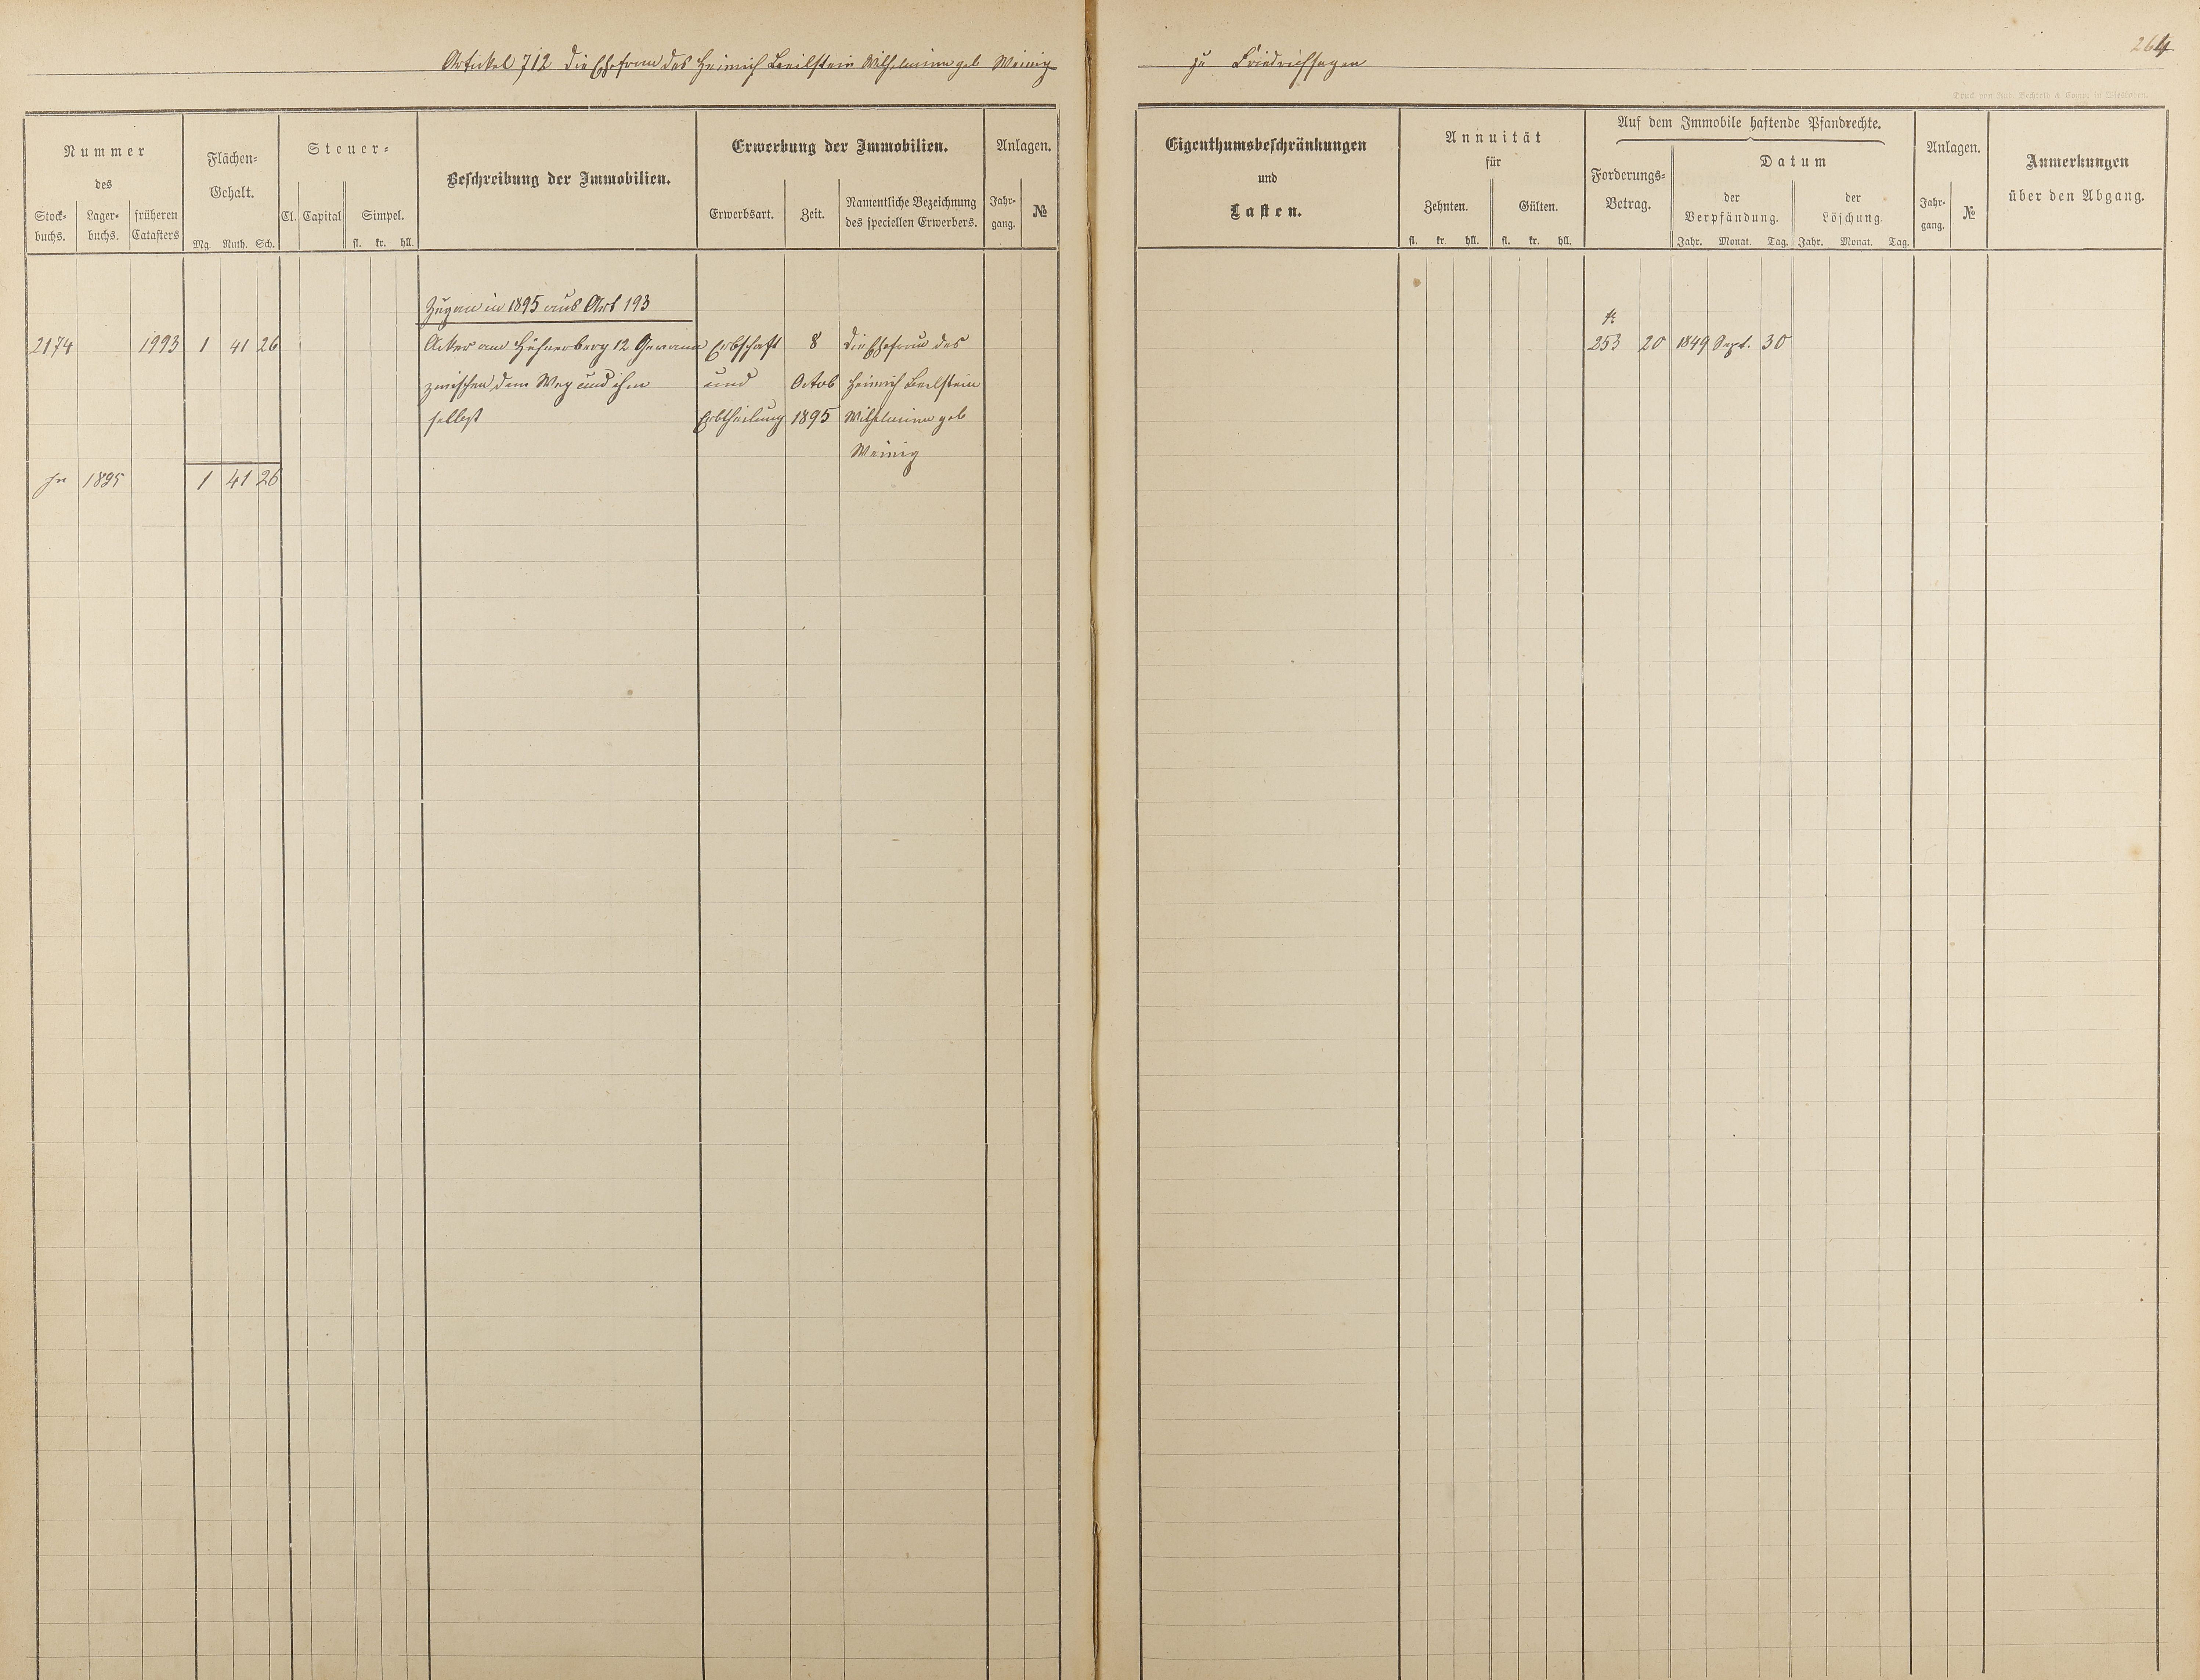 Artikel 712 die Ehefrau des Heinrich Beilstein Wilhelmine geb Weinig
zu Friedrichssegen
264
Druck von Rud. Bechtold & Comp. in Wiesbaden.
Nummer
des
Stock-
buchs.
Lager-
buchs.
früheren
Catasters
Flächen-
Gehalt.
Mg. Ruth. Sch.
Steuer-
Cl. Capital Simpel.
fl. kr. hll.
Beschreibung der Immobilien.
Erwerbung der Immobilien.
Erwerbsart. Zeit.
Namentliche Bezeichnung
des speciellen Erwerbers.
Anlagen.
Jahr-
gang.
№
Eigenthumsbeschränkungen
und
Lasten.
Annuität
für
Zehnten. Gülten.
fl. kr. hll. fl. kr. hll.
Auf dem Immobile haftende Pfandrechte.
Forderungs-
Betrag.
Datum
der
Verpfändung.
der
Löschung
Jahr. Monat. Tag. Jahr. Monat. Tag.
Anlagen.
Jahr-
gang.
№
Anmerkungen
über den Abgang.
Zugan in 1895 aus Art 193
2174 1993 1 41 26 Acker am Hühnerberg 12 Gewann Erbschaft 8 die Ehefrau des
zwischen dem Weg und ihm und Octob Heinrich Beilstein
selbst Erbtheilung 1895 Wilhelmine geb
Weinig
1895 1 41 26
fl
253 20 1849 Sept. 30